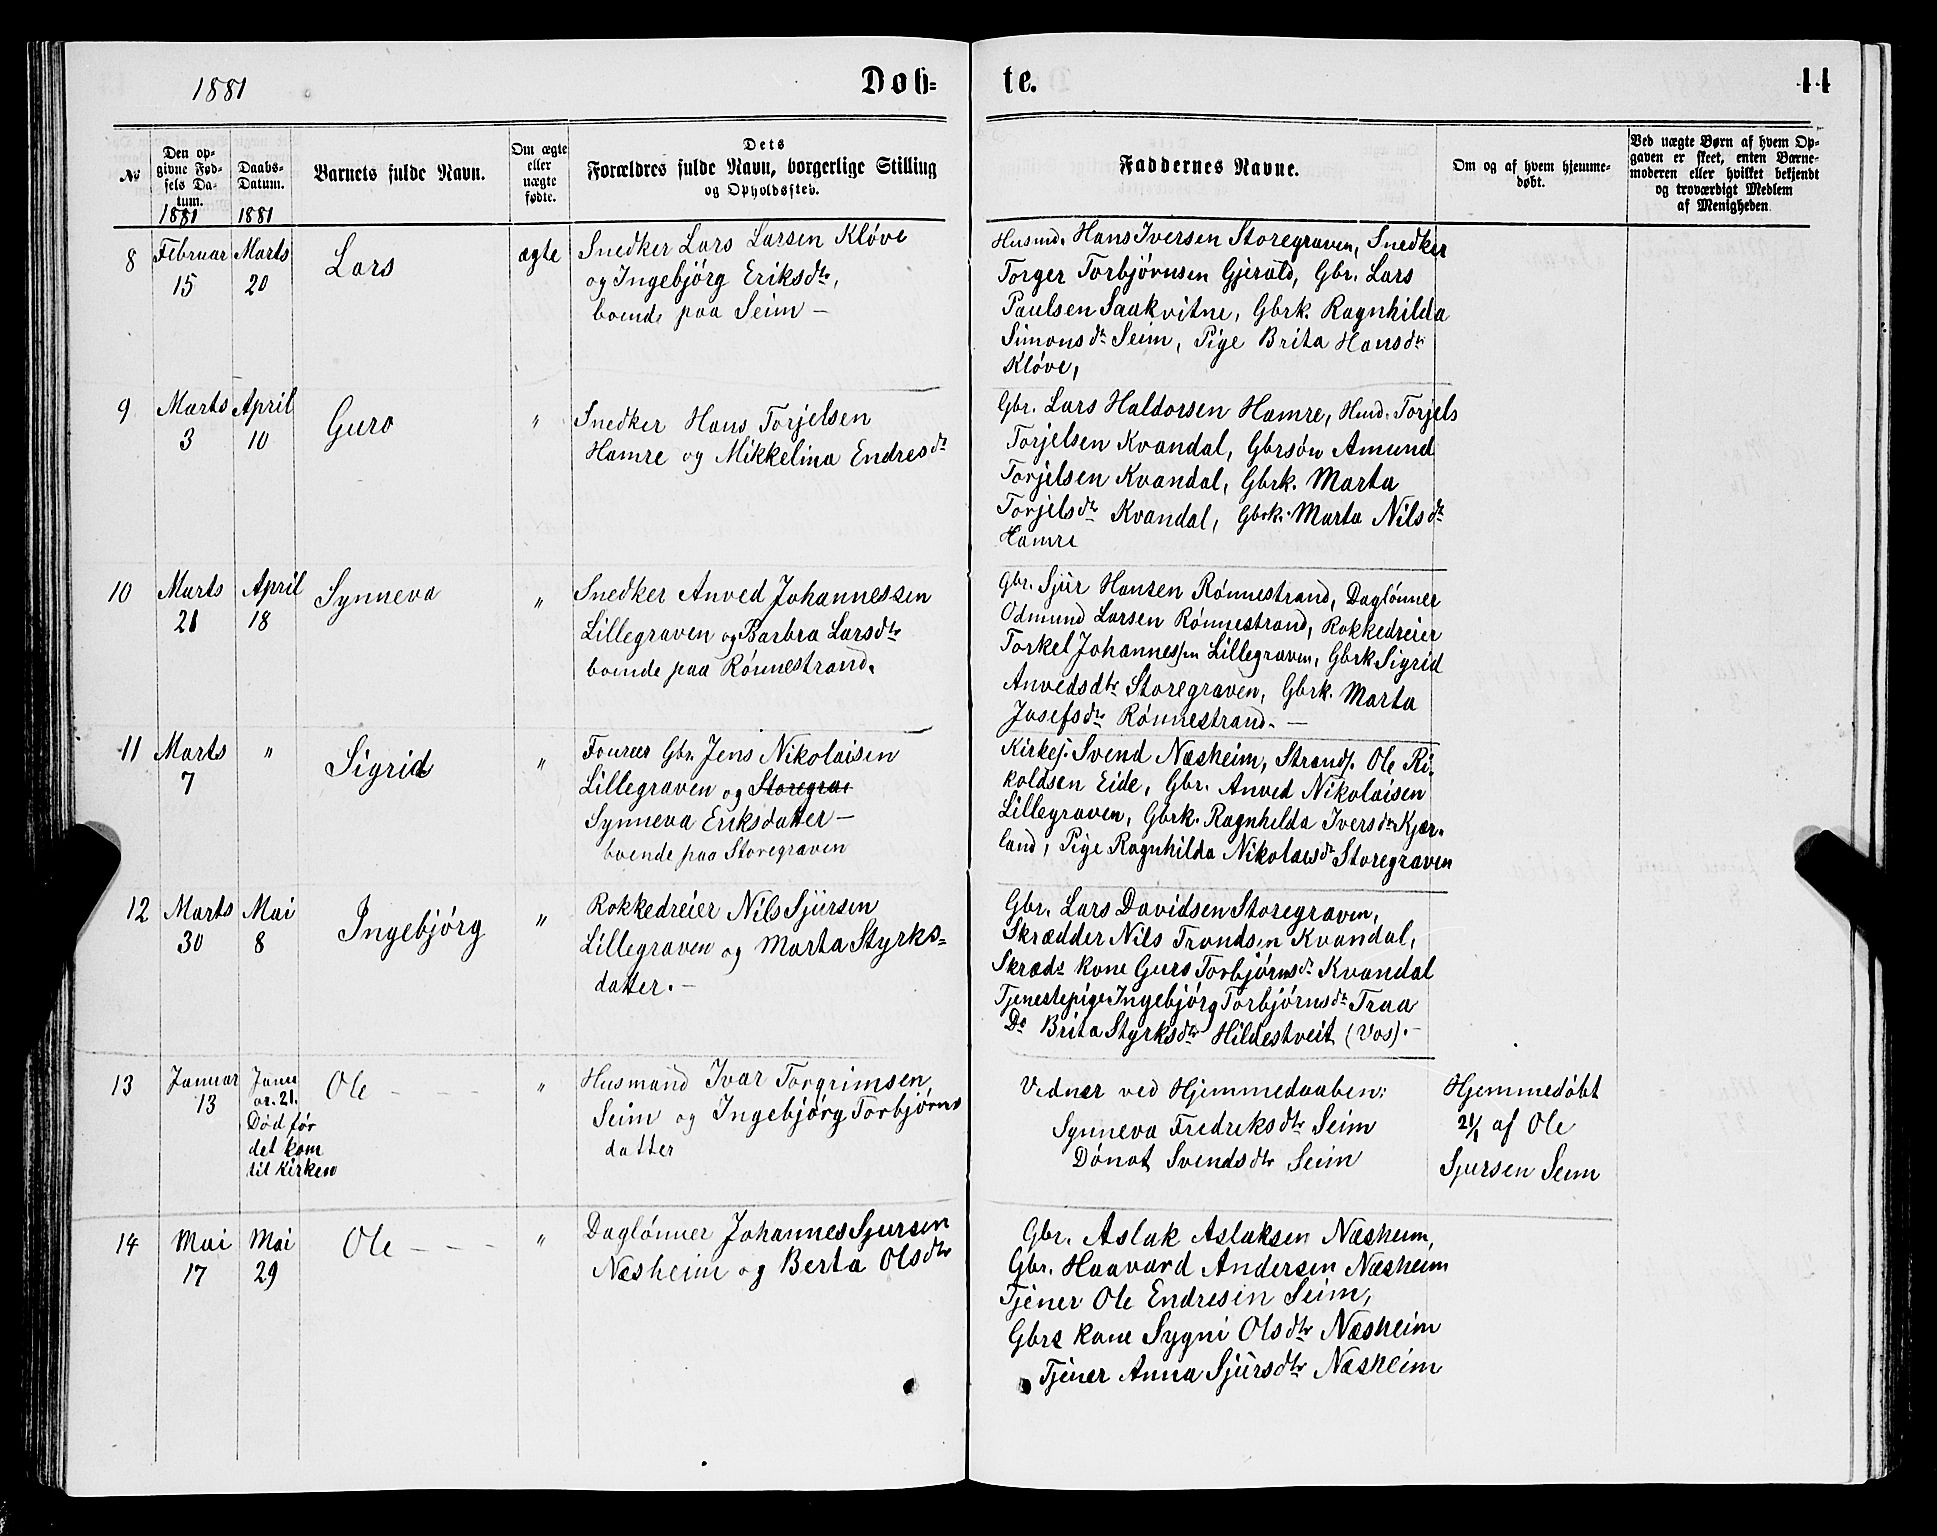 1881
Døb-
te.
11
№
Den op-
givne Fød-
sels Da-
tum.
1881
Daabs-
Datum.
1881
Barnets fulde Navn.
Om ægte
eller
uægte
fødte.
Dets
Forældres fulde Navn, borgerlige Stilling
og Opholdssted.
Faddernes Navne.
Om og af hvem hjemme-
døbt.
Ved uægte Børn af hvem Op-
gaven er skeet, enten Barne-
moderen eller hvilket bekjendt
og troværdigt Medlem
af Menigheden.
8
Februar
15
Marts
20
Lars
ægte
Snedker Lars Larsen Kløve
og Ingebjörg Eriksdtr,
boende paa Seim –
Husmd. Hans Iversen Storegraven, Snedker
Torger Torbjörnsen Gjerald, Gbr. Lars
Paulsen Saakvitne, Gbrk. Ragnhilda
Simonsdtr Seim, Pige Brita Hansdtr
Kløve,
9
Marts
3
April
10
Guro
"
Snedker Hans Torjelsen
Hamre og Mikkelina Endresdtr
Gbr. Lars Haldorsen Hamre, Hmd. Torjels
Torjelsen Kvandal, Gbrsön Amund
Torjelsen Kvandal, Gbrk. Marta
Torjelsdtr Kvandal, Gbrk. Marta Nilsdtr
Hamre
10
Marts
21
April
18
Synneva
"
Snedker Anved Johannessen
Lillegraven og Barbra Larsdtr
boende paa Rönnestrand.
Gbr. Sjur Hansen Rönnestrand, Daglönner
Odmund Larsen Rönnestrand, Rokkedreier
Torkel Johannessen Lillegraven, Gbrk Sigrid
Anvedsdtr Storegraven, Gbrk. Marta
Josefsdtr Rönnestrand. –
11
Marts
7
"
Sigrid
"
Fourer Gbr. Jens Nikolaisen
Lillegraven og Storegrav
Synneva Eriksdatter –
boende paa Storegraven
Kirkes. Svend Næsheim, Strands. Ole Ri-
koldsen Eide, Gbr. Anved Nikolaisen
Lillegraven, Gbrk. Ragnhilda Iversdtr Kjær-
land, Pige Ragnhilda Nikolaisdtr Storegraven
12
Marts
30
Mai
8
Ingebjörg
"
Rokkedreier Nils Sjursen
Lillegraven og Marta Styrks-
datter. –
Gbr. Lars Davidsen Storegraven,
Skrædder Nils Trondsen Kvandal,
Skrædr kone Guro Torbjörnsdtr Kvandal
Tjenestepige Ingebjörg Torbjörnsdtr Traa
Do Brita Styrksdtr Hildestveit (Vos). –
13
Januar
13
Janu
ar. 21.
Död för
det kom
til Kirken
Ole – – –
"
Husmand Ivar Torgrimsen,
Seim og Ingebjörg Torbjörns
datter
Vidner ved Hjemmedaaben:
Synneva Fredriksdtr Seim
Dönot Svendsdtr Seim
Hjemmedöbt
21/1 af Ole
Sjursen Seim
14
Mai
17
Mai
29
Ole – – –
"
Daglönner Johannes Sjursen
Næsheim og Berta Olsdtr
Gbr. Aslak Aslaksen Næsheim,
Gbr. Haavard Andersen Næsheim
Tjener Ole Endresen Seim,
Gbrs kone Sygni Olsdtr Næsheim
Tjener Anna Sjursdtr Næsheim